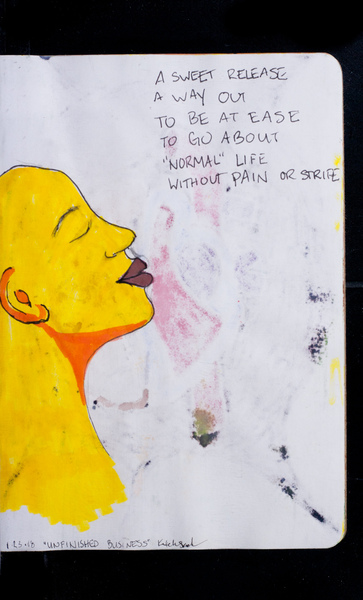 A SWEET RELEASE
A WAY OUT
TO BE AT EASE
TO GO ABOUT
"NORMAL" LIFE
WITHOUT PAIN OR STRIFE
"UNFINISHED BUSINESS"